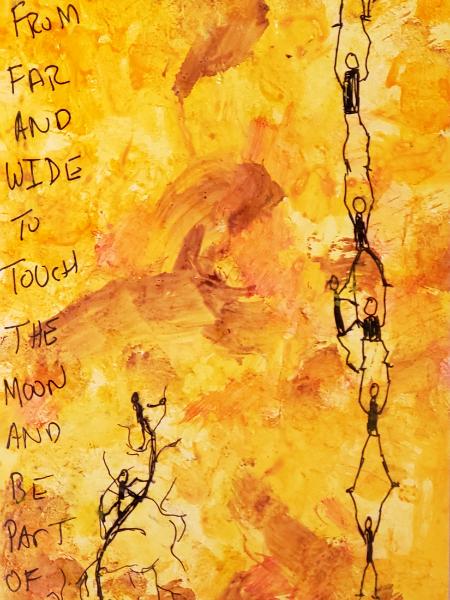 FROM
FAR
AND
WIDE
TO
TOUCH
THE
MOON
AND
BE
PART
OF